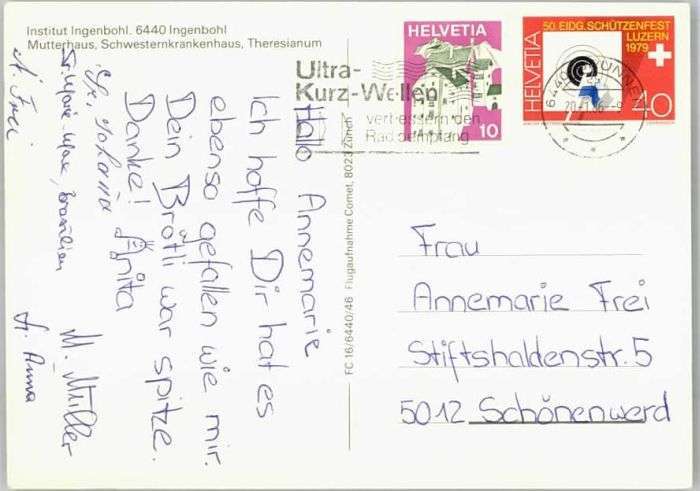 Institut Ingenbohl. 6440 Ingenbohl
Mutterhaus, Schwesternkrankenhaus, Theresianum
HELVETIA
10
50. EIDG. SCHÜTZENFEST
LUZERN
1979
HELVETIA
40
Ultra-
Kurz-Wellen
verbessern den
Radioempfang
6440 BRUNNEN
-9
Hallo Annemarie
Ich hoffe Dir hat es
ebenso gefallen wie mir.
Dein Brötli war spitze.
Danke! Anita
M. Müller
Sr. Anna
A. Frei
FC 16/6440/46 Flugaufnahme Comet, 8023 Zürich
Frau
Annemarie Frei
Stiftshaldenstr. 5
5012 Schönenwerd